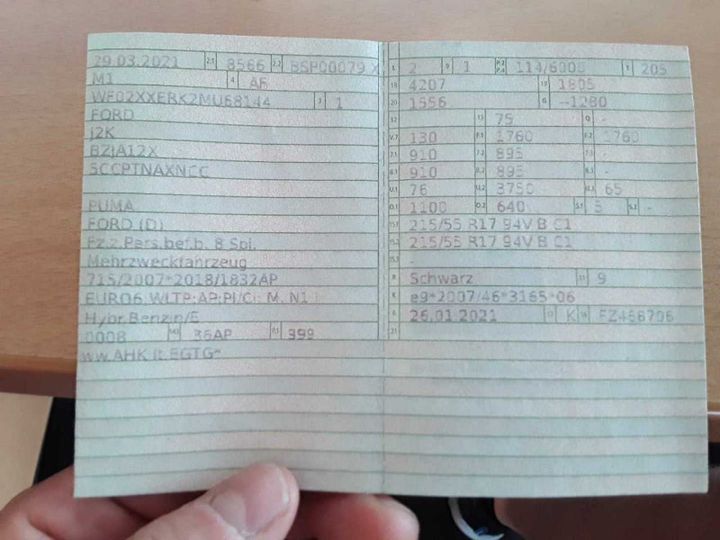 29.03.2021 2.1 8566 2.2 BSP00079 X
M1 4 AF
WF02XXERK2MU68144 3 1
FORD
J2K
BZJA12X
5CCPTNAXNCC
PUMA
FORD (D)
Fz.z.Pers.bef.b. 8 Spl.
Mehrzweckfahrzeug
715/2007*2018/1832AP
EURO6 WLTP;AP;PI/CI; M, N1
Hybr.Benzin/E
0008 36AP 999
ww.AHK lt.EGTG*
2 9 1 P.2 P.4 114/6000 T 205
18 4207 19 1805
20 1556 G --1280
12 - 13 75 Q -
V.7 130 F.1 1760 F.2 1760
7.1 910 7.2 895 7.3 -
8.1 910 8.2 895 8.3 -
U.1 76 U.2 3750 U.3 65
O.1 1100 O.2 640 S.1 5 S.2 -
15.1 215/55 R17 94V B C1
15.2 215/55 R17 94V B C1
15.3 -
R Schwarz 11 9
K e9*2007/46*3165*06
6 26.01.2021 17 K 16 FZ466706
21